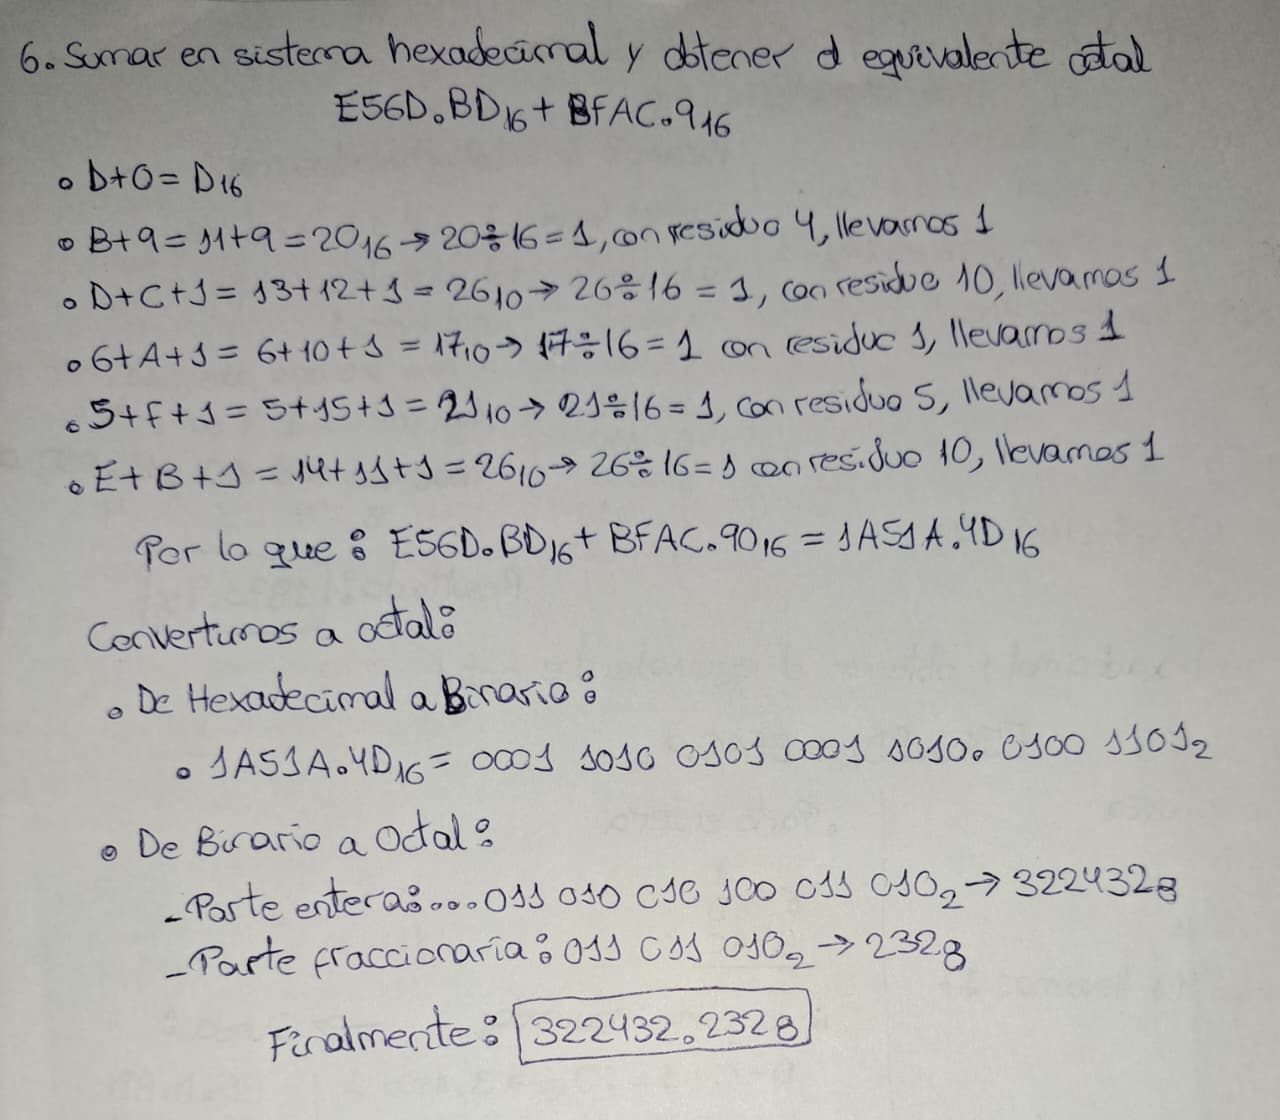 6. Sumar en sistema hexadecimal y obtener el equivalente octal
E56D.BD16 + BFAC.916
• D+0 = D16
• B+9 = 11+9 = 2016 → 20÷16 = 1, con residuo 4, llevamos 1
• D+C+1 = 13+12+1 = 2610 → 26÷16 = 1, con residuo 10, llevamos 1
• 6+A+1 = 6+10+1 = 1710 → 17÷16 = 1 con residuo 1, llevamos 1
• 5+F+1 = 5+15+1 = 2110 → 21÷16 = 1, con residuo 5, llevamos 1
• E+B+1 = 14+11+1 = 2610 → 26÷16 = 1 con residuo 10, llevamos 1
Por lo que: E56D.BD16 + BFAC.9016 = 1A51A.4D16
Convertimos a octal:
• De Hexadecimal a Binario:
• 1A51A.4D16 = 0001 1010 0101 0001 1010. 0100 11012
• De Binario a Octal:
- Parte entera:... 011 010 010 100 011 0102 → 3224328
- Parte fraccionaria: 011 011 0102 → 2328
Finalmente: 322432.2328